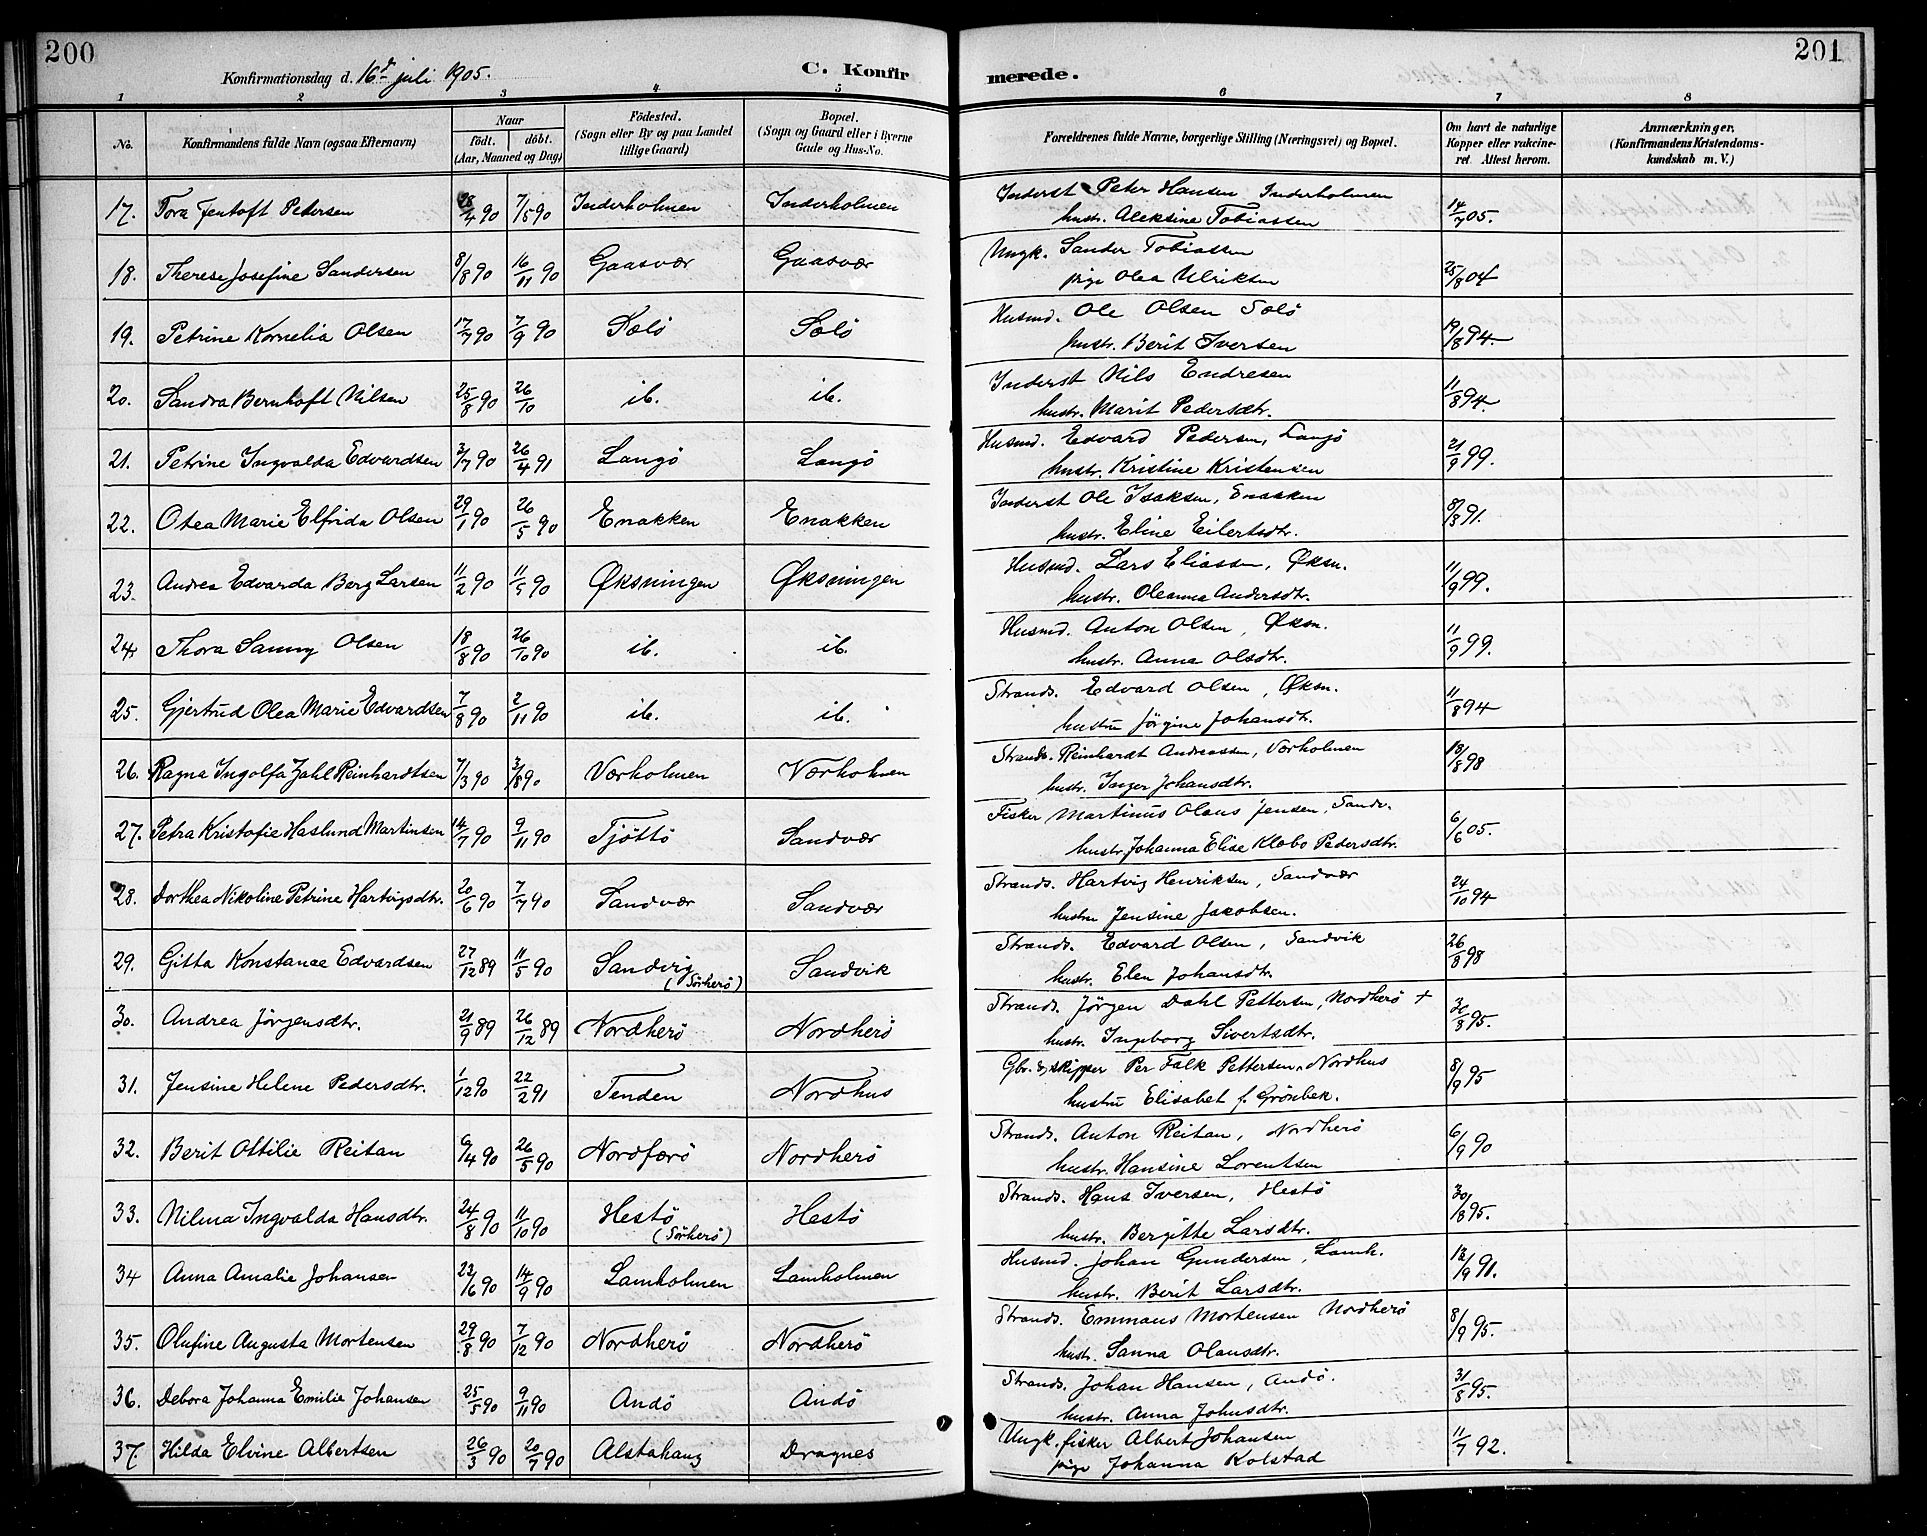 200
Konfirmationsdag d. 16de juli 1905.
C. Konfirmerede.
201
1 2 3 4 5 6 7 8
No.
Konfirmandens fulde Navn (ogsaa Efternavn)
Naar
født. døbt.
(Aar, Maaned og Dag)
Fødested.
(Sogn eller By og paa Landet
tillige Gaard)
Bopæl.
(Sogn og Gaard eller i Byerne
Gade og Hus-No.
Forældrenes fulde Navne, borgerlige Stilling (Næringsvei) og Bopæl.
Om havt de naturlige
Kopper eller vakcine-
ret. Attest herom.
Anmærkninger.
(Konfirmandens Kristendoms-
kundskab m. V.)
17. Tora Jentoft Pedersen 28/4 90 7/5 90 Inderholmen Inderholmen Inderst Peter Hansen Inderholmen 14/7 05.
hustr. Aleksine Tobiassen
18. Therese Josefine Sandersen 8/8 90 16/11 90 Gaasvær Gaasvær Ungk. Sander Tobiassen 25/8 04
pige Olea Ulriksen
19. Petrine Kornelia Olsen 17/7 90 7/9 90 Sølö Sølö Husmd. Ole Olsen Solö 19/8 94.
hustr. Berit Iversen
20. Sandra Bernhoft Nilsen 25/8 90 26/10 ib. ib. Inderst Nils Endresen 11/8 94.
hustr. Marit Pedersdtr.
21. Petrine Ingvalda Edvardsen 3/7 90 26/4 91 Langö Langö Husmd. Edvard Pedersen, Langö 21/9 99.
hustr. Kristine Kristensen
22. Otea Marie Elfrida Olsen 29/1 90 26/5 90 Enakken Enakken Inderst Ole Isaksen, Enakken 8/8 91.
hustr. Eline Eilertsdtr.
23. Andrea Edvarda Berg Larsen 11/2 90 11/5 90 Øksningen Øksningen Husmd. Lars Eliassen, Øksn. 11/9 99.
hustr. Oleanna Andersdtr.
24. Thora Sanny Olsen 18/8 90 26/10 90 ib. ib. Husmd. Anton Olsen, Øksn. 11/9 99.
hustr. Anna Olsdtr.
25. Gjertrud Olea Marie Edvardsen 7/8 90 2/11 90 ib. ib. Strands. Edvard Olsen, Øksn. 11/8 94
hustru Jörgine Johansdtr.
26. Ragna Ingolfa Zahl Reinhardtsen 7/3 90 3/8 90 Værholmen Værholmen Strands. Reinhardt Andreassen, Værholmen 18/8 98
hustr. Inger Johansdtr.
27. Petra Kristofie Haslund Martinsen 14/7 90 9/11 90 Tjöttö Sandvær Fisker Martinus Olaus Jensen, Sandv. 6/6 05.
hustr. Johanna Elise Klæbo Pedersdtr.
28. Dorthea Nikoline Petrine Hartvigsdtr. 20/6 90 7/7 90 Sandvær Sandvær Strands. Hartvig Henriksen, Sandvær 24/10 94
hustru Jensine Jakobsen.
29. Gitta Konstance Edvardsen 27/12 89 11/5 90 Sandvig (Sörherö) Sandvik Strands. Edvard Olsen, Sandvik 26/8 98
hustr. Elen Johansdtr.
30. Andrea Jörgensdtr. 21/9 89 26/12 89 Nordherö Nordherö Strands. Jörgen Dahl Pettersen, Nordherö + 30/8 95.
hustr. Ingeborg Sivertsdtr.
31. Jensine Helene Pedersdtr. 1/12 90 22/2 91 Tenden Nordhus Gbr. & skipper Per Falk Pettersen, Nordhus 8/9 95
hustru Elisabet f. Grönbek.
32. Berit Ottilie Reitan 6/4 90 26/5 90 Nordfærö Nordherö Strands. Anton Reitan, Nordherö 6/9 90
hustr. Hansine Lorentsen
33. Nilma Ingvalda Hansdtr. 24/8 90 11/10 90 Hestö (Sörherö) Hestö Strands. Hans Iversen, Hestö 30/8 95.
hustr. Bergitte Larsdtr.
34 Anna Amalie Johansen 22/6 90 14/9 90 Lamholmen Lamholmen Husmd. Johan Gundersen, Lamh. 18/9 91.
hustr. Berit Larsdtr.
35. Olufine Augusta Mortensen 29/8 90 7/12 90 Nordherö Nordherö Strands. Emmaus Mortensen Nordherö 8/9 95.
hustr. Sanna Olausdtr.
36. Debora Johanna Emilie Johansen 25/5 90 9/11 90 Andö Andö Strands. Johan Hansen, Andö. 31/8 95.
hustr. Anna Johnsdtr.
37. Hilda Elvine Albertsen 26/3 90 20/7 90 Alstahaug Dragnes Ungk. fisker Albert Johansen 11/7 92.
pige Johanna Kolstad